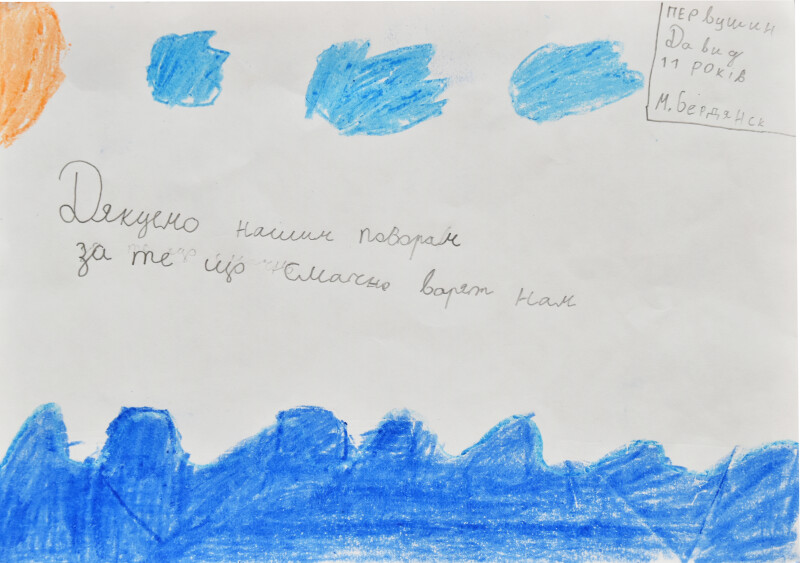 Первушин
Давид
11 років
м. Бердянск
Дякуємо нашим поворам
за те що смачно варят нам